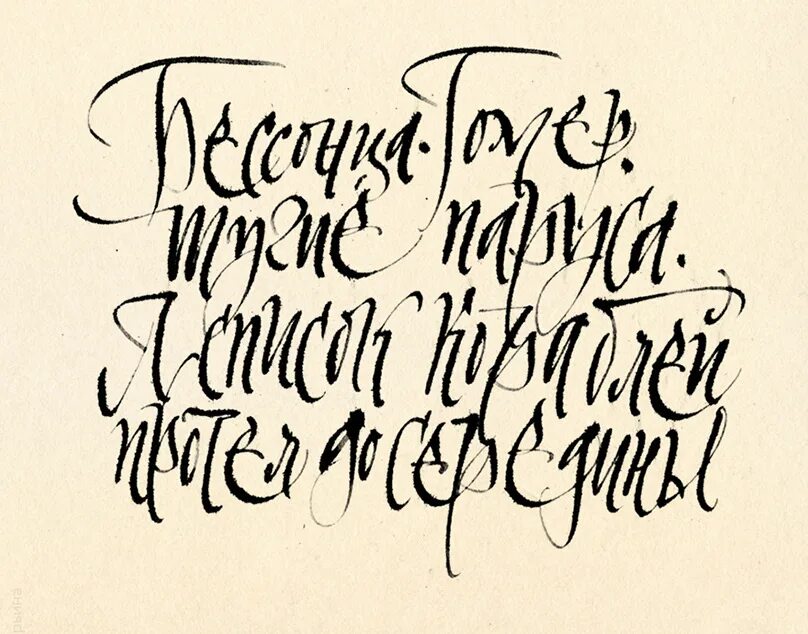 Бессонница. Гомер.
тугие паруса.
Я список кораблей
прочел до середины